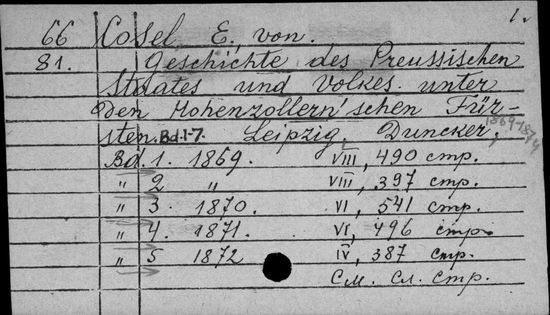 1.
66 Cosel, E. von.
81. Geschichte des Preussischen
Staates und Volkes unter
den Hohenzollern'schen Für-
sten. Bd. 1-7. Leipzig, Duncker,
1869-1874
Bd. 1. 1869. VIII, 490 стр.
„ 2 „ VIII, 397 стр.
„ 3. 1870. VI, 541 стр.
„ 4. 1871. VI, 496 стр.
„ 5 1872 IV, 387 стр.
См. сл. стр.